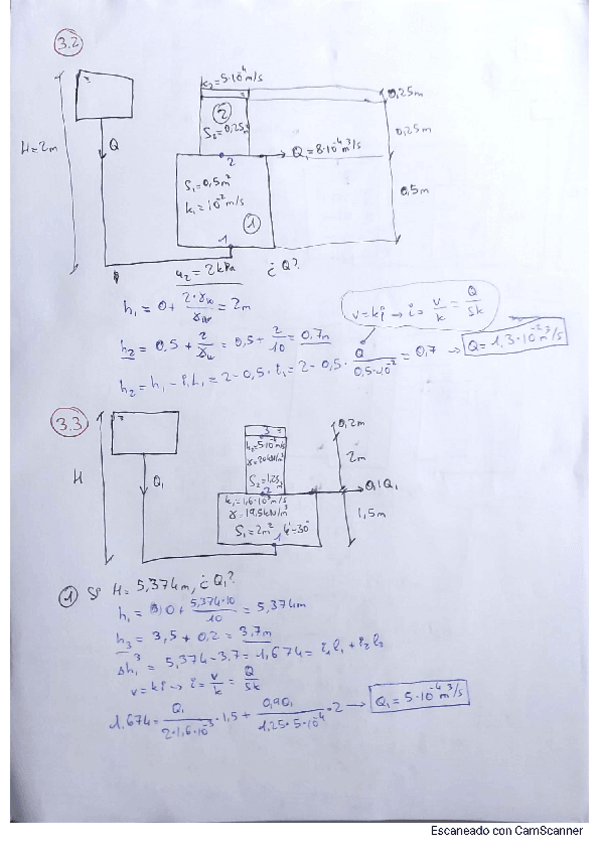 3.2
k₂=5·10⁻⁴m/s
②
S₂=0,25m²
2
Q
H=2m
Q₁=8·10⁻⁴m³/s
0,25m
0,25m
0,5m
S₁=0,5m²
k₁=10⁻²m/s
①
1
u₂=2kPa ¿Q?
h₁ = 0 + 2·γw/γw = 2m
v=ki → i = v/k = Q/Sk
h₂ = 0,5 + 2/γw = 0,5 + 2/10 = 0,7m
h₂ = h₁ - i₁L₁ = 2 - 0,5·i₁ = 2 - 0,5 · Q/0,5·10⁻² = 0,7 → Q = 1,3·10⁻²m³/s
3.3
H
Q₁
3
k₂=5·10⁻⁴m/s
γ=20kN/m³
S₂=1,25m²
2
k₁=1,6·10⁻³m/s
γ=19,5kN/m³
S₁=2m²
1
0,2m
2m
0,1Q₁
1,5m
① Si H = 5,374m, ¿Q₁?
h₁ = 0 + 5,374·10/10 = 5,374m
h₃ = 3,5 + 0,2 = 3,7m
Δh₁³ = 5,374 - 3,7 = 1,674 = i₁l₁ + i₂l₂
v = ki → i = v/k = Q/Sk
1,674 = Q₁/2·1,6·10⁻³ · 1,5 + 0,9Q₁/1,25·5·10⁻⁴ · 2 → Q₁ = 5·10⁻⁴m³/s
Escaneado con CamScanner